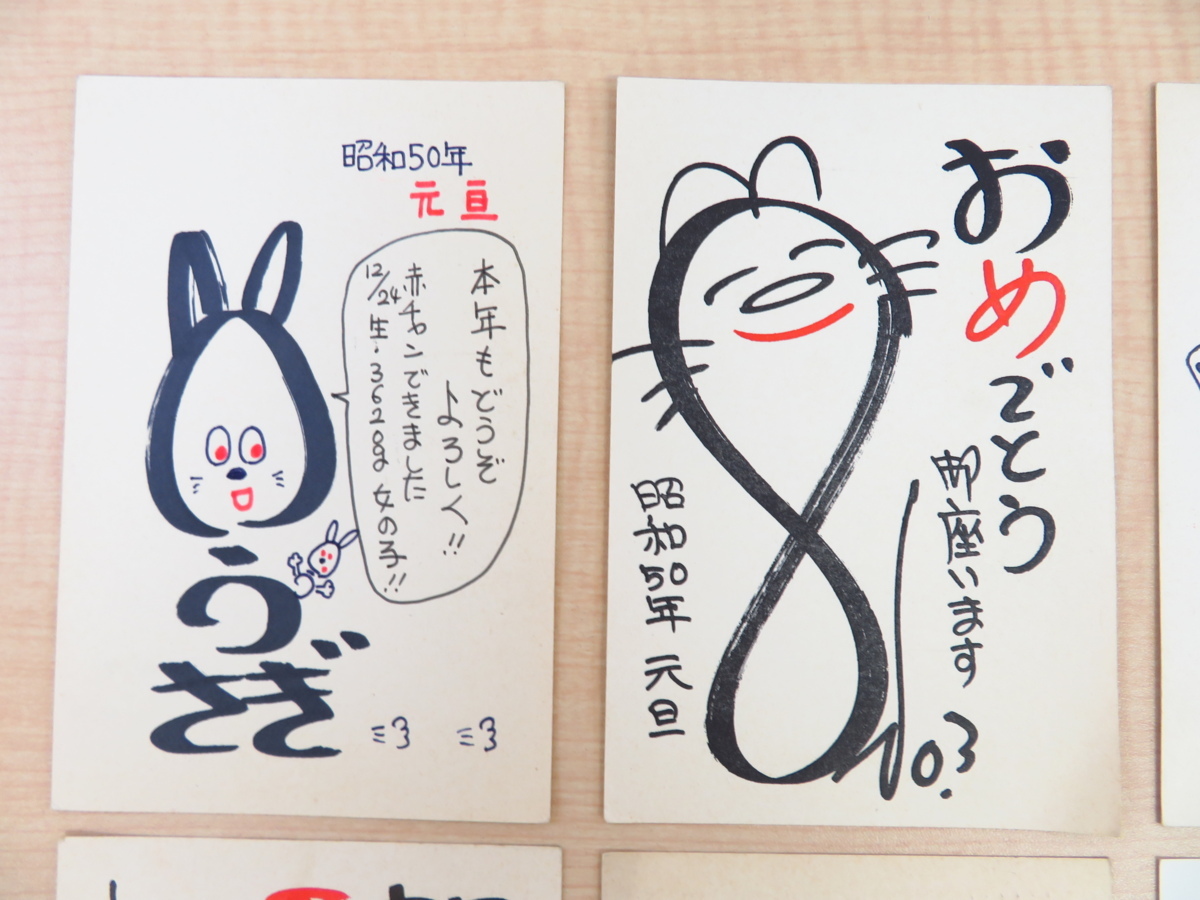 昭和50年
元旦
本年もどうぞ
よろしく!!
赤チャンできました
12/24生・3620g 女の子!!
うさぎ
おめでとう
御座います
昭和50年 元旦
No.3